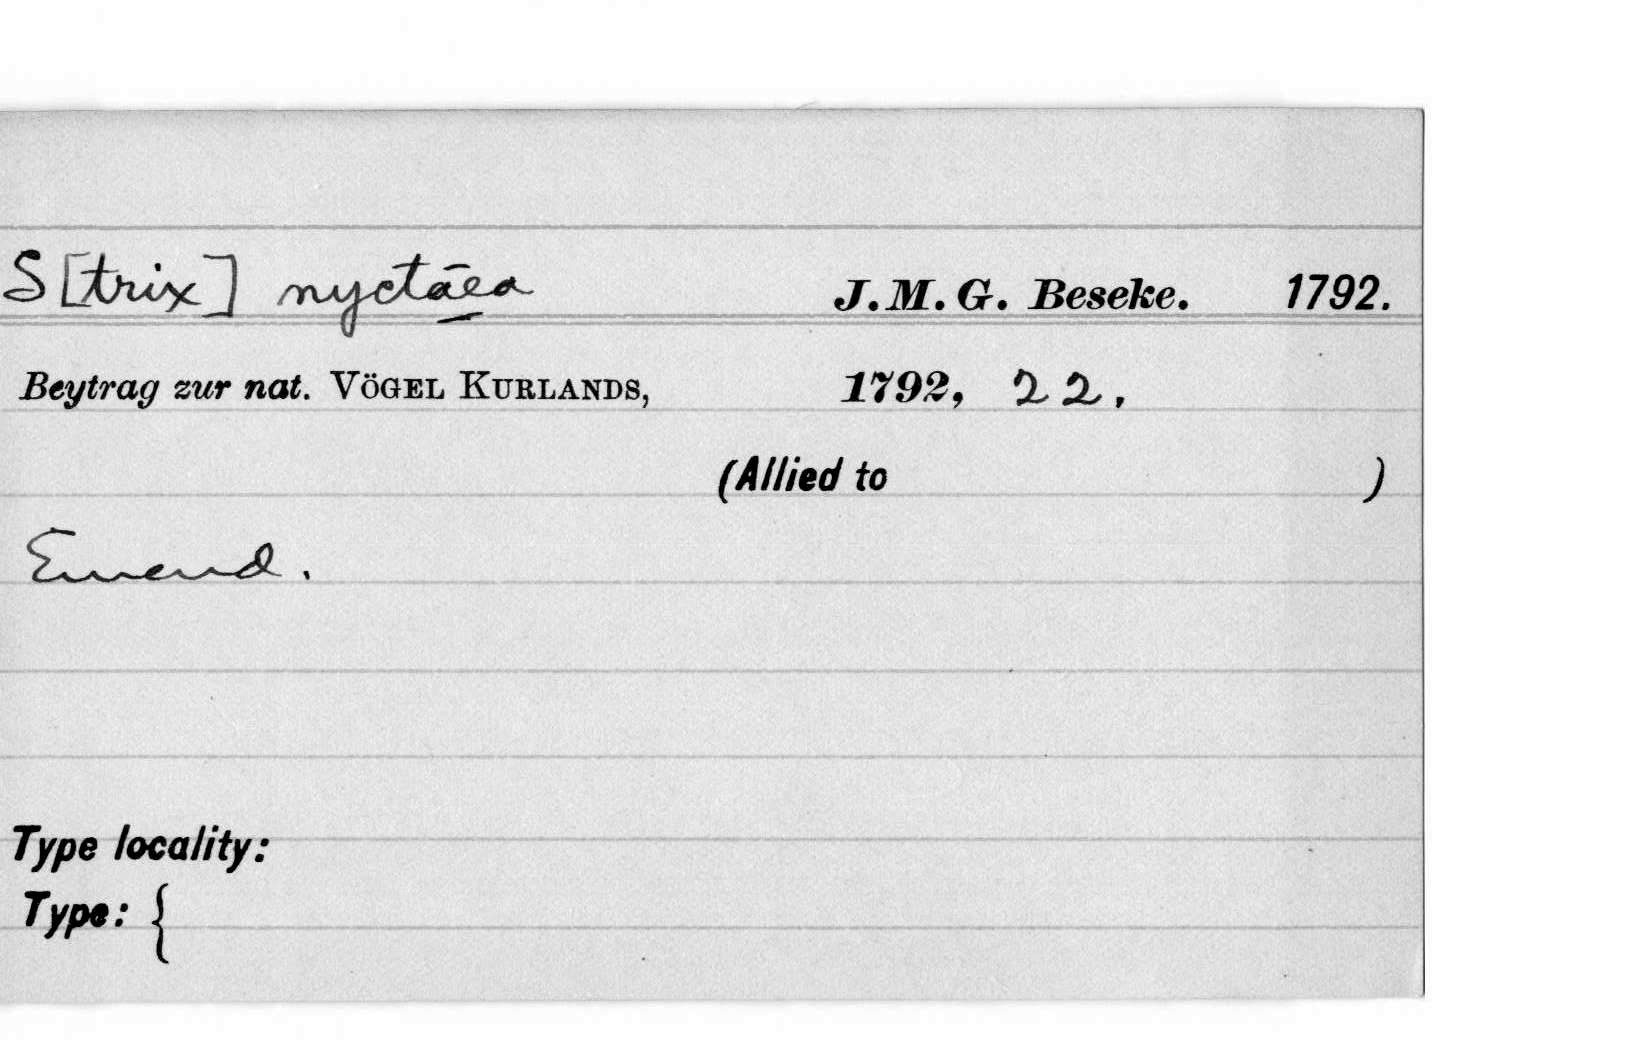 S[trix] nyctāea J.M.G. Beseke. 1792.
Beytrag zur nat. VÖGEL KURLANDS, 1792, 22.
(Allied to )
Emend.
Type locality:
Type: {